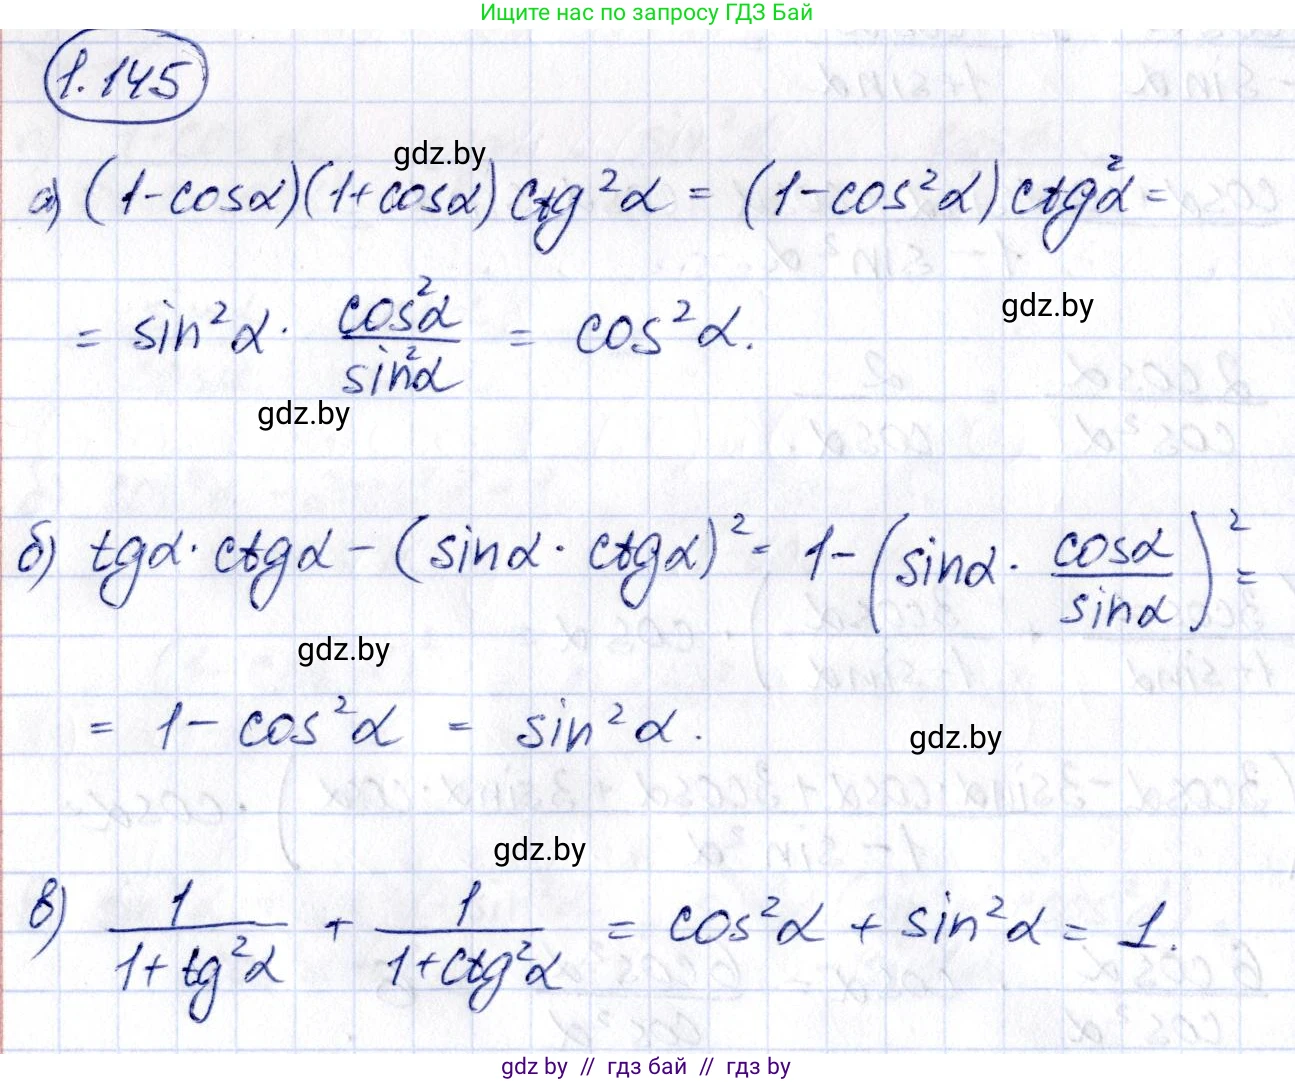 Ищите нас по запросу ГДЗ Бай
1.145
gdz.by
а) (1-cosα)(1+cosα) ctg²α = (1-cos²α) ctg²α =
gdz.by
= sin²α · cos²α/sin²α = cos²α.
gdz.by
б) tgα · ctgα - (sinα · ctgα)² = 1 - (sinα · cosα/sinα)² =
gdz.by
= 1 - cos²α = sin²α.
gdz.by
gdz.by
в) 1/(1+tg²α) + 1/(1+ctg²α) = cos²α + sin²α = 1.
gdz by // гдз бай // гдз by